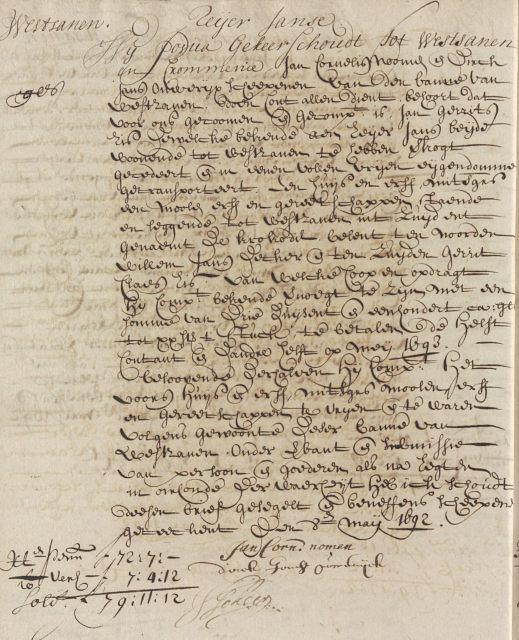 Westsanen.
Reijer Janse
Wij Jodua Geheer Schoudt tot Westsanen
en Crommenie Jan Cornelis Nomen en Dirck
Jans schepenen van den banne van
westzanen, doen cont allen dient behoort dat
voor ons gecoomen en gecompt is Jan Gerrits
dewelcke bekende aen Reijer Jans beijde
woonende tot westzanen te hebben
gecedeert en in eenen vollen vrijen eijgendomme
getransporteert Een huijs en erff mitsges
een moolen erff en gereetschappen, staende
en leggende tot westzanen int Zuijdent
genaemt De belent ten noorden
willem Jans en ten Zuijden Gerrit
Claes van welcke coop en opdragt
hij Compt bekende te zijn met een
somme van Drie Duijsent en eenhondert car: gl
tot xx sts t stuck, te betalen de helft
Contant en d'ander helft op meij 1693
beloovende derhalven hij Compt Het
voors huijs en erff, mitsges moolen, erff
en gereetschappen te vrijen en te waren
volgens gewoonte deser banne van
westzanen onder en submissie
van persoon en goederen als na regten
in oirconde der waerheijt heb ick schoudt
deesen brief gesegelt en beneffens schepene
geteeckent Den 8en meij 1692
Jan Corn: nomen
72:7:-
7:4:12
79:11:12